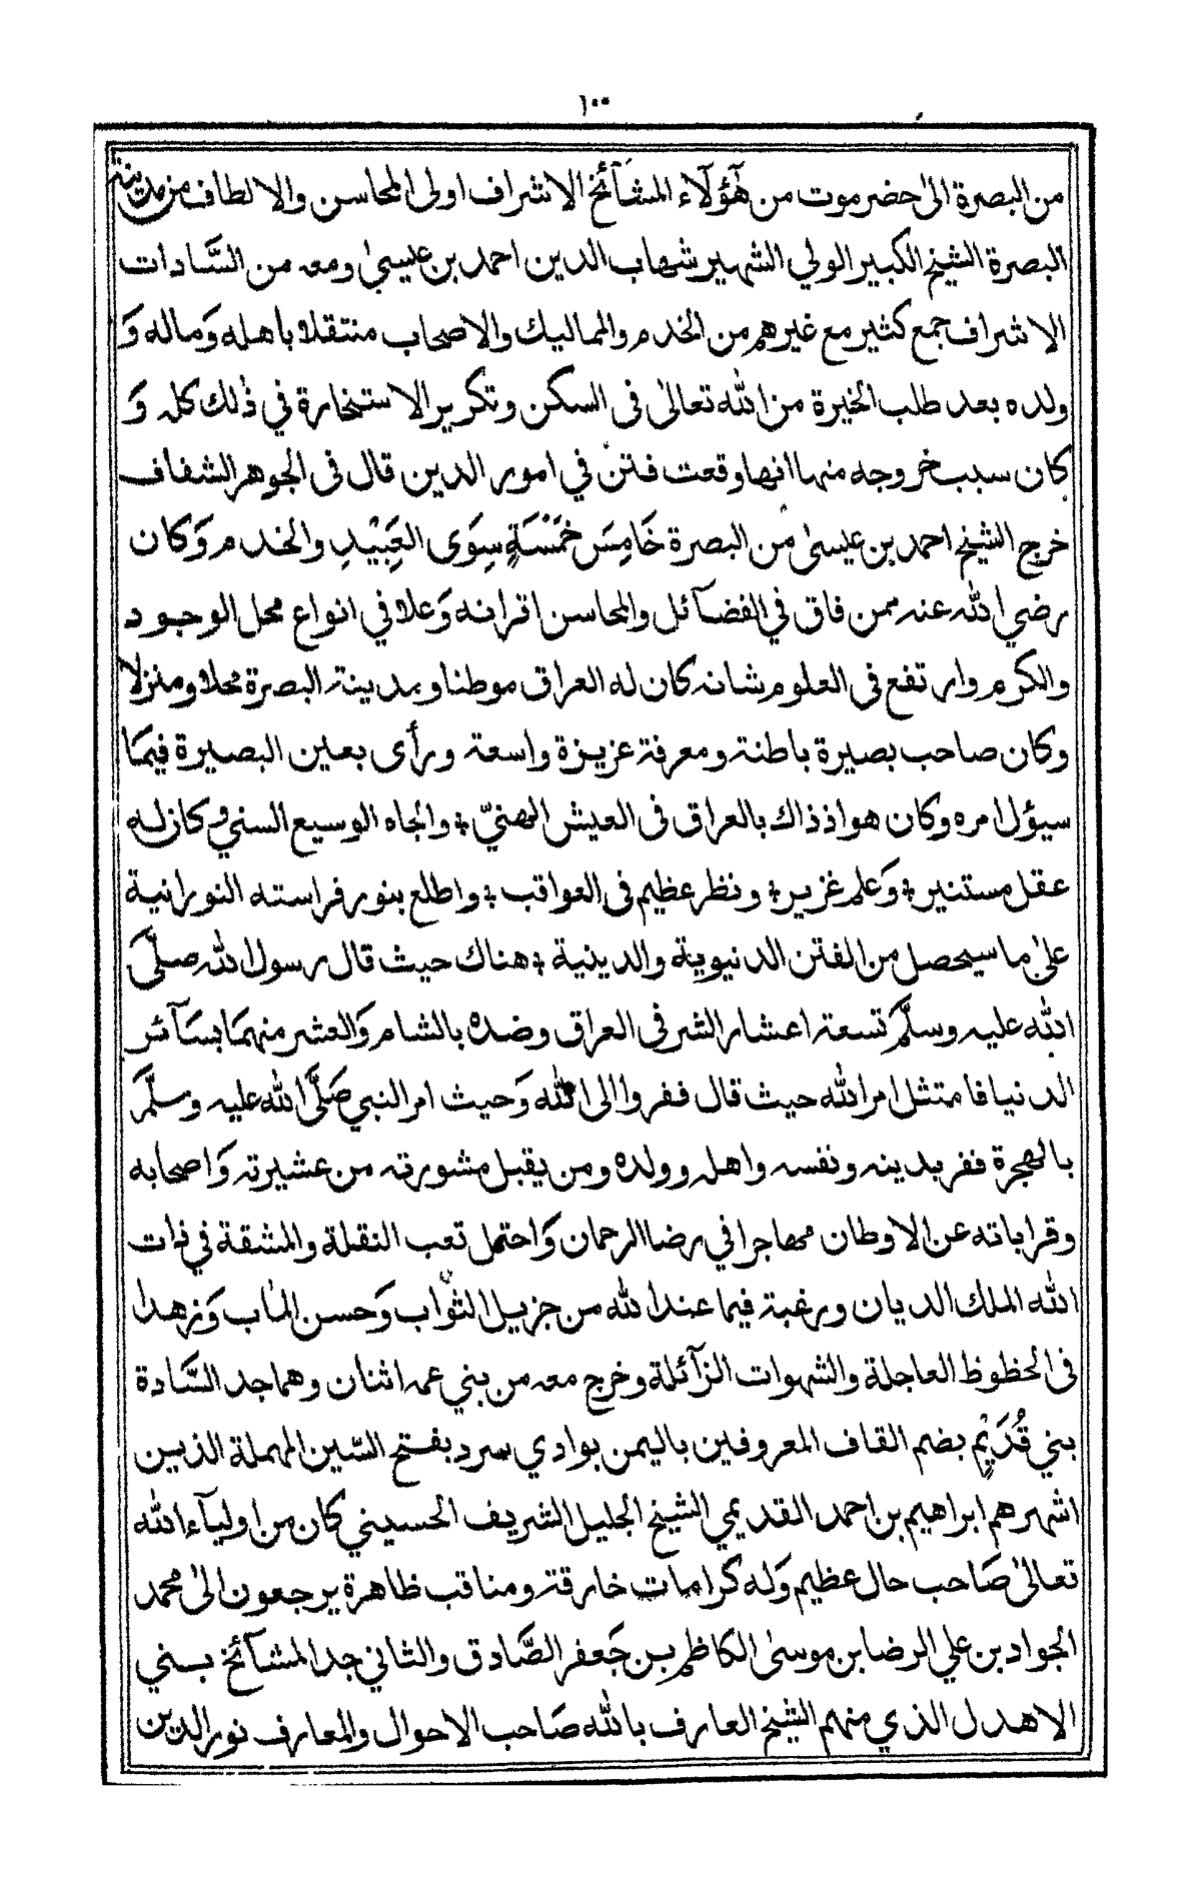 ١٠٠
من البصرة الىٰ حضرموت من هٓؤلٓاء المشآئخ الاشراف اولى المحاسن والالطاف من مدينة
البصرة الشيخ الكبير الولي الشهير شهاب الدين احمد بن عيسىٰ ومعه من السَّادات
الاشراف جمع كثير مع غيرهم من الخدم والمماليك والاصحاب منتقلا باهله وَماله وَ
ولده بعد طلب الخيرة من الله تعالىٰ فى السكن وتكرير الاستخارة في ذٰلك كله وَ
كان سبب خروجه منها انها وقعت فتن في امور الدين قال فى الجوهر الشفاف
خرج الشيخ احمد بن عيسىٰ من البصرة خَامِسَ خَمْسَةٍ سِوَى العَبِيْدِ والخدم وَكان
رضي الله عنه ممن فاق في الفضآئل والمحاسن اقرانه وَعلا في انواع محل الوجود
والكرم وارتفع فى العلوم شانه كان له العراق موطنا وبمدينة البصرة محلا ومنزلا
وكان صاحب بصيرة باطنة ومعرفة عزيزة واسعة ورأى بعين البصيرة فيمَا
سيؤل امره وكان هو اذ ذاك بالعراق فى العيش الهنيّ ؛ والجاه الوسيع السني وكان له
عقل مستنير ؛ وَعلم غزير ؛ ونظر عظيم فى العواقب ؛ واطلع بنور فراسته النورانية
علىٰ ما سيحصل من الفتن الدنيوية والدينية ؛ هناك حيث قال رسول الله صلَّى
الله عليه وسلَّم تسعة اعشار الشر فى العراق وضده بالشام وَالعشر منهمَا بسَآئر
الدنيا فامتثل امر الله حيث قال ففروا الى الله وَحيث امر النبي صَلَّى الله عليه وسلَّم
بالهجرة ففر بدينه ونفسه واهله وولده ومن يقبل مشورته من عشيرته وَاصحابه
وقراباته عن الاوطان مهاجرا في رضا الرحمان وَاحتمل تعب النقلة والمشقة في ذات
الله الملك الديان ورغبة فيما عند الله من جزيل الثوَاب وَحسن المٰاب وَزهدا
فى الحظوظ العاجلة والشهوات الزآئلة وخرج معه من بني عمه اثنان وهما جد السَّادة
بني قُدَيْمٍ بضم القاف المعروفين باليمن بوادي سردد بفتح السّين المهملة الذين
اشهرهم ابراهيم بن احمد القديمي الشيخ الجليل الشريف الحسيني كان من اوليآء الله
تعالىٰ صَاحب حال عظيم وَله كرامات خارقة ومناقب ظاهرة يرجعون الىٰ محمد
الجواد بن علي الرضا بن موسىٰ الكاظم بن جَعفر الصَّادق والثاني جد المشآئخ بني
الاهدل الذي منهم الشيخ العارف بالله صَاحب الاحوال والمعارف نور الدين